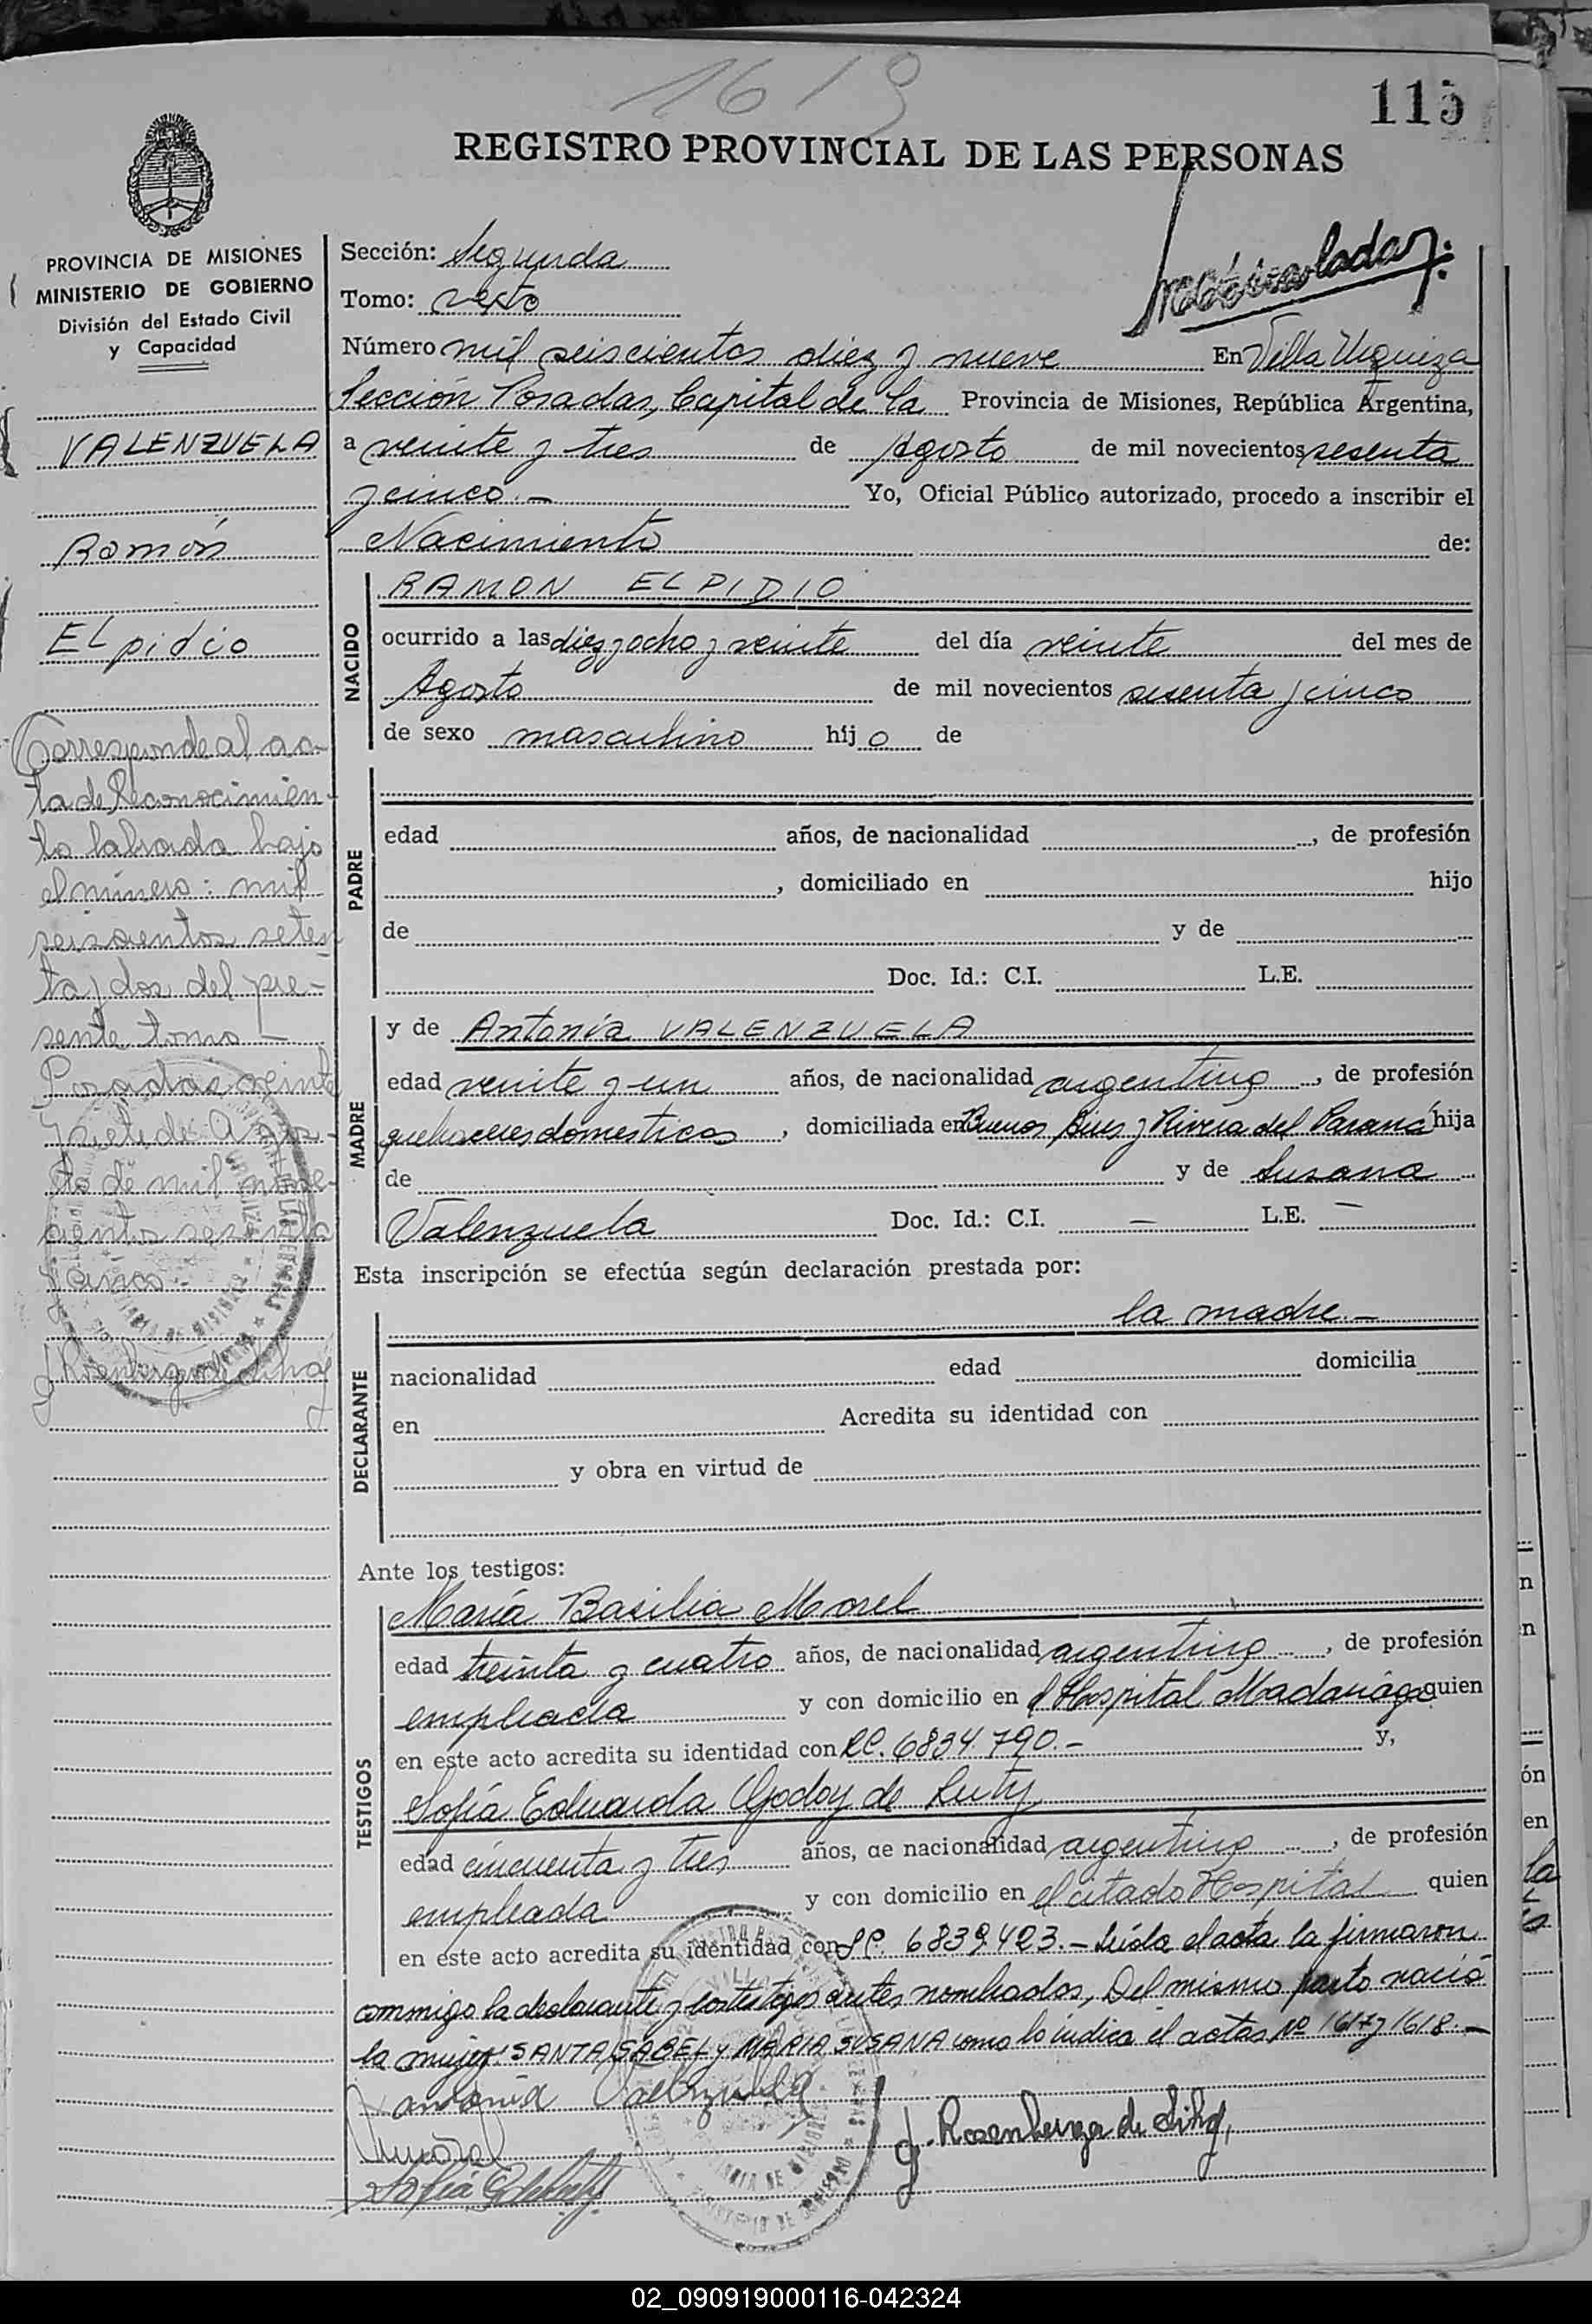 1619
115
REGISTRO PROVINCIAL DE LAS PERSONAS
PROVINCIA DE MISIONES
MINISTERIO DE GOBIERNO
División del Estado Civil
y Capacidad
VALENZUELA
Ramón
ELpidio
Corresponde al ac-
ta de Reconocimien-
to labrada bajo
el número: mil
seiscientos seten
ta y dos del pre-
sente tomo -
Posadas veinte
y siete de Agos-
to de mil nove-
cientos sesenta
y cinco -
Sección: Segunda
Tomo: sexto
Número mil seiscientos diez y nueve En Villa Urquiza
Sección Posadas, Capital de la Provincia de Misiones, República Argentina,
a veinte y tres de Agosto de mil novecientos sesenta
y cinco.- Yo, Oficial Público autorizado, procedo a inscribir el
Nacimiento de:
NACIDO
RAMON ELPIDIO
ocurrido a las diez y ocho y veinte del día veinte del mes de
Agosto de mil novecientos sesenta y cinco
de sexo masculino hij o de
PADRE
edad años, de nacionalidad , de profesión
, domiciliado en hijo
de y de
Doc. Id.: C.I. L.E.
MADRE
y de Antonia VALENZUELA
edad veinte y un años, de nacionalidad argentina , de profesión
quehaceres domesticos , domiciliada en Buenos Aires y Rivera del Paraná hija
de y de Susana
Valenzuela Doc. Id.: C.I. — L.E. —
Esta inscripción se efectúa según declaración prestada por:
DECLARANTE
la madre.-
nacionalidad edad domicilia
en Acredita su identidad con
y obra en virtud de
Ante los testigos:
TESTIGOS
María Basilia Morel
edad treinta y cuatro años, de nacionalidad argentina , de profesión
empleada y con domicilio en el Hospital Madariaga quien
en este acto acredita su identidad con LC. 6834.790.- y,
Sofía Eduarda Godoy de Luty
edad cincuenta y tres años, de nacionalidad argentina , de profesión
empleada y con domicilio en el citado Hospital quien
en este acto acredita su identidad con LC. 6839.423.- Leída el acta la firmaron
conmigo la declarante y los testigos antes nombrados, Del mismo parto nació
la mujer: SANTA ISABEL y MARIA SUSANA como lo indica el actas Nº 1617 y 1618.-
Antonia Valenzuela
J. Rosenberga de
Sofía
02_090919000116-042324